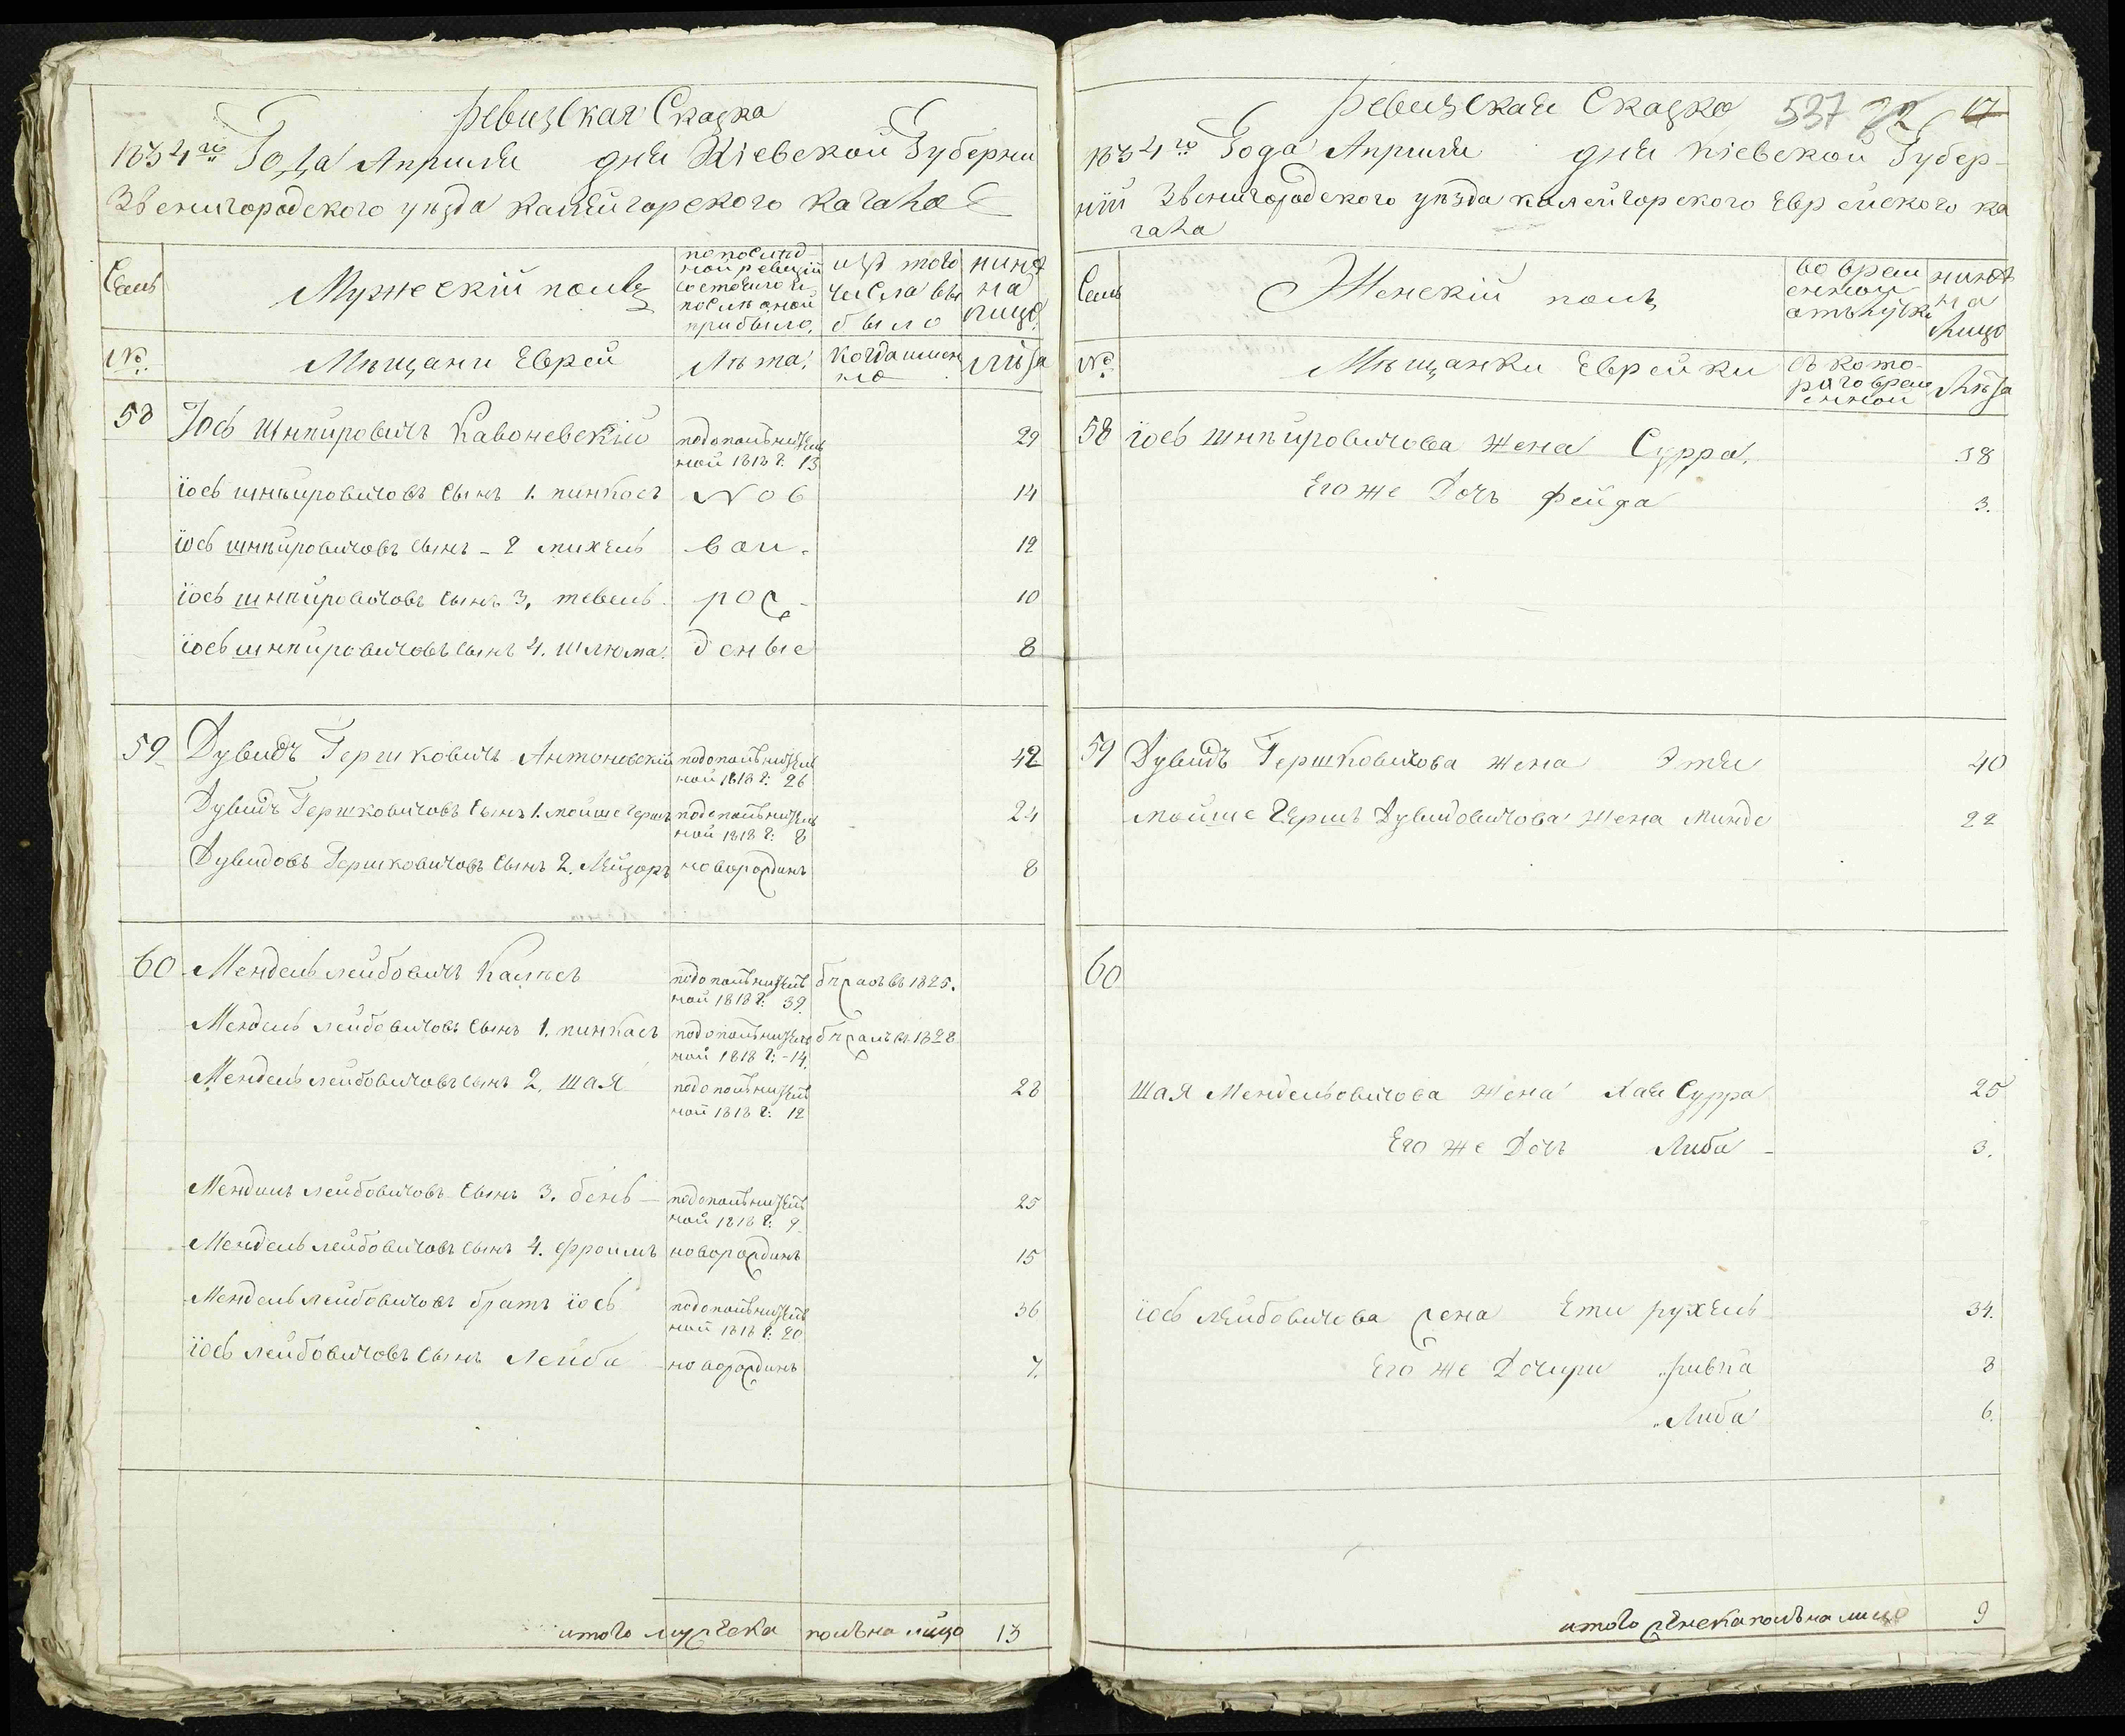 Ревизская Сказка
1834го Года Апреля дня Киевской Губернии
Звенигородского уезда калнигорского кагала
Семь
Мужеский полъ
по последней ревизии состояло и после оной прибыло.
изъ того числа выбыло
ныне на лицо.
№
Мещани Еврей
Лета.
когда именно
лета
58 Іось Шнпировичъ Кавоневскій
ной 1818 г: 13
29
іось шнпировичовъ сынъ 1. пинкосъ Нов 14
іось шнпировичовъ сынъ - 2 михель вои. 12
іось шнпировичовъ сынъ 3. тевель рож- 10
іось шнпировичовъ сынъ 4. шлюма. деные 8
59 Дувидъ Гершковичъ Антоновскій
ной 1818 г: 26
42
Дувидъ Гершковичовъ сынъ 1. мойше герш
ной 1818 г: 8
24
Дувидовъ Гершковичовъ сынъ 2. Лейзоръ новорождинъ 8
60 Мендель лейбовичъ
ной 1818 г: 39.
въ 1825.
Мендель лейбовичовъ сынъ 1. пинкосъ
ной 1818 г: -14.
1828
Мендель лейбовичовъ сынъ 2. шая
ной 1818 г: 12
28
Мендель лейбовичовъ сынъ 3. бень
ной 1818 г: 9
25
Мендель лейбовичовъ сынъ 4. фроимъ новорождинъ 15
Мендель лейбовичовъ братъ іось
ной 1818 г: 20
36
іось лейбовичовъ сынъ Лейба новорождинъ 7.
итого мужеска полъ на лицо 13
Ревизская Сказка 537 22 17
1834го Года Апреля дня киевской Губер-
ніи Звенигородского уезда калнигорского Еврейского ка
гала
Семь
Женскій полъ
во временной отълучке
ныне на лицо
№
Мещанки Еврейки
съ которого временной
Лета
58 іось шнпировичова жена Сурра. 38
Его же Дочъ фейга 3.
59 Дувидъ Гершковичова жена Этя 40
мойше Гершъ Дувидовичова жена Минде 22
60
шая Мендельовичова жена Хая Сурра 25
Его же Дочъ Либа - 3.
іось лейбовичова жена Ети рухель 34.
Его же Дочири ривка 8
Либа 6.
итого женска полъ на лицо 9